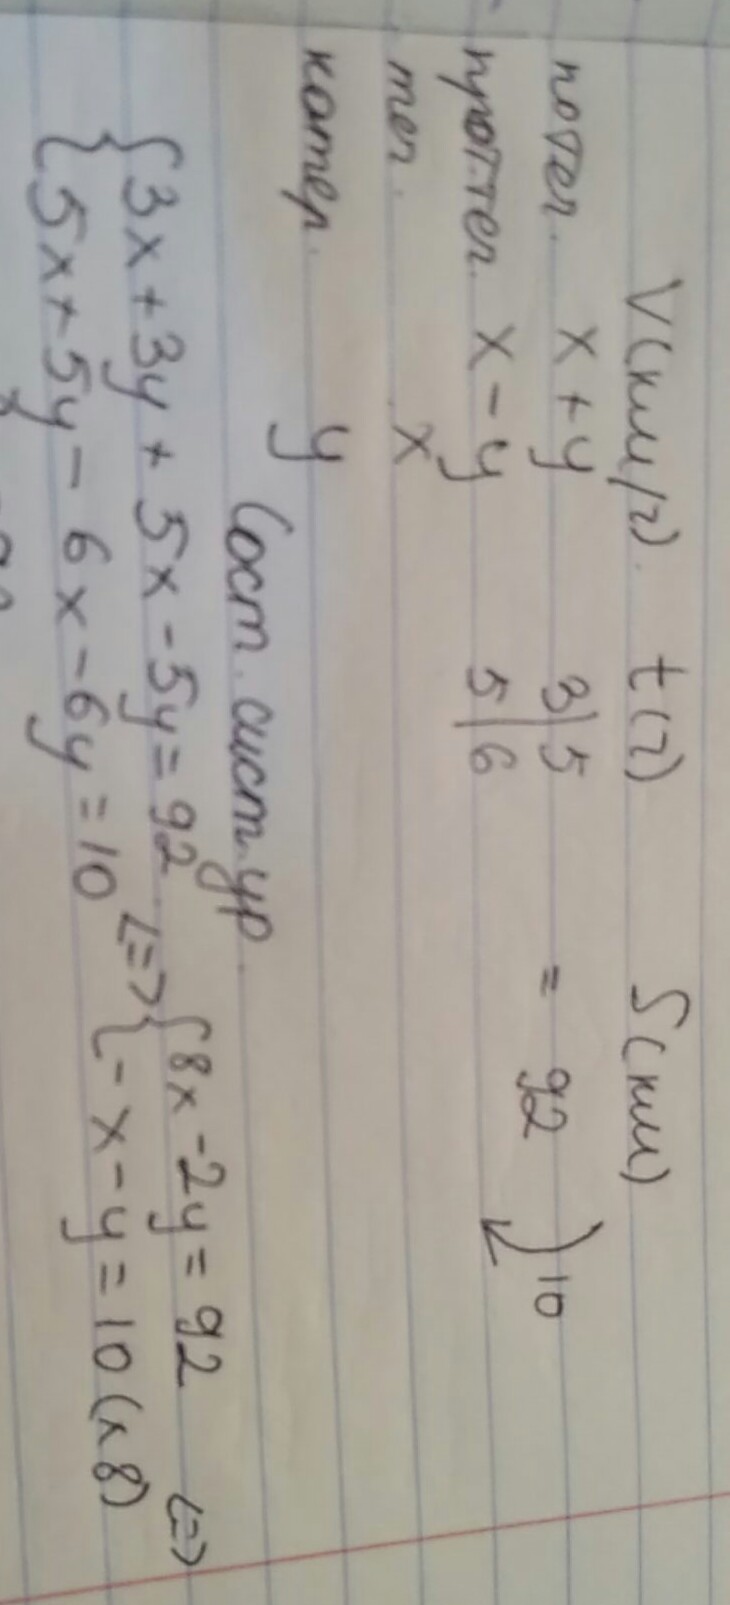 V(км/ч) t(ч) S(км)
по теч. x + y 3 | 5 = 92
пр. теч. x - y 5 | 6 10
теч. x
катер. y
Сост. сист. ур.
{ 3x + 3y + 5x - 5y = 92 <=> { 8x - 2y = 92 <=>
{ 5x + 5y - 6x - 6y = 10 { - x - y = 10 (x 8)